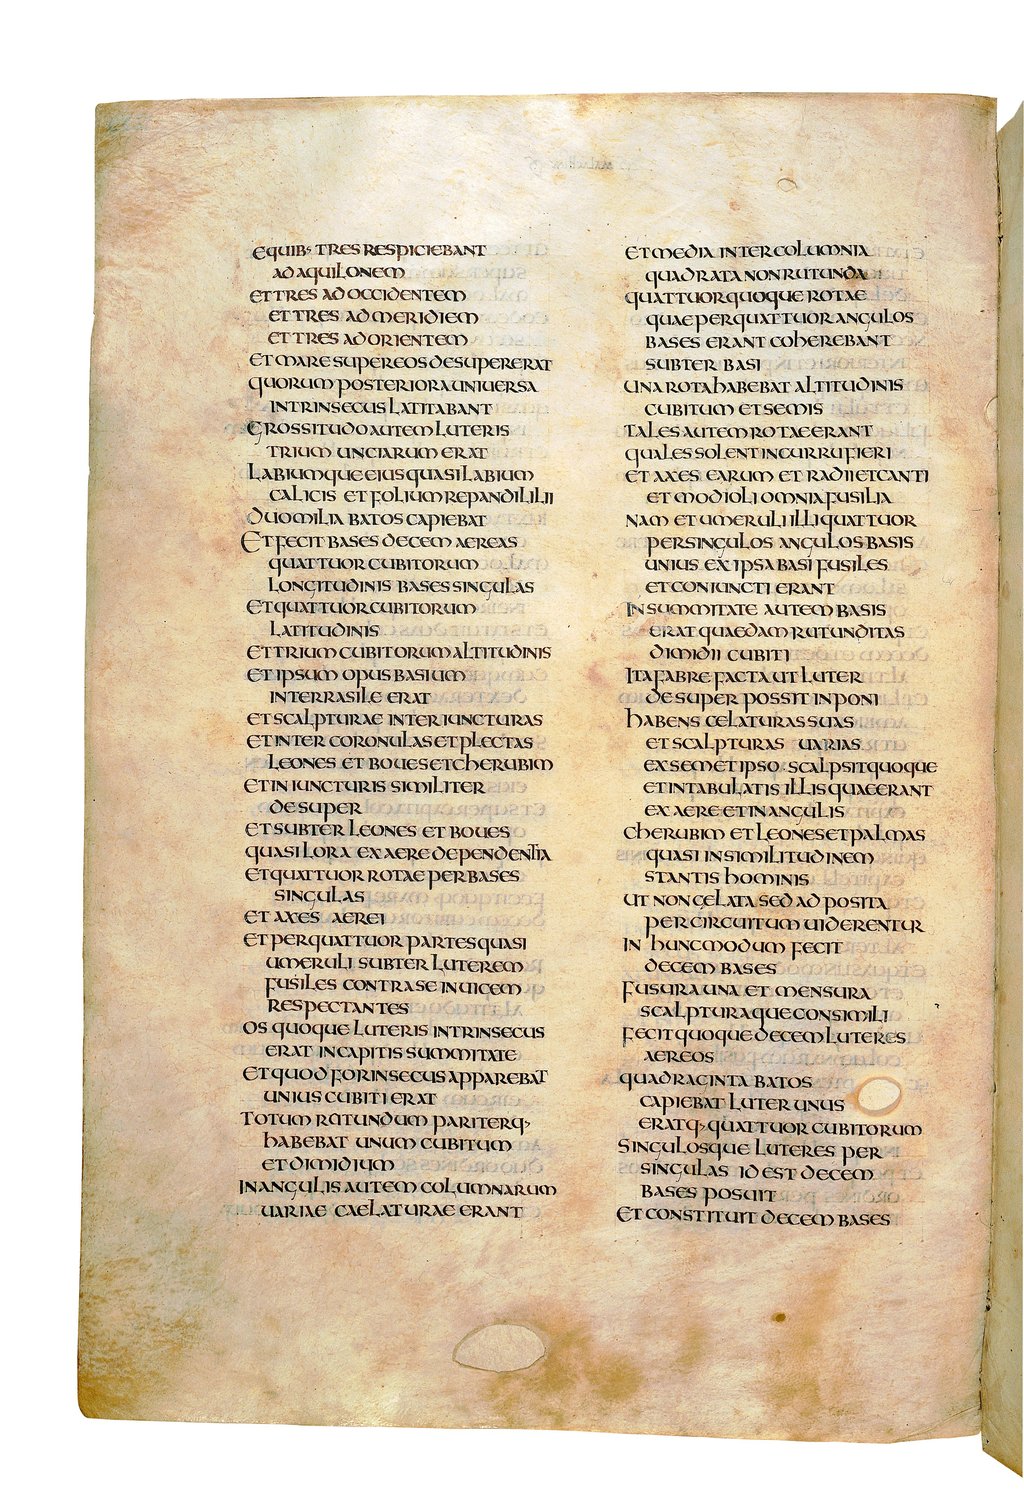 EQUIB· TRES RESPICIEBANT
AD AQUILONEM
ET TRES AD OCCIDENTEM
ET TRES AD MERIDIEM
ET TRES AD ORIENTEM
ET MARE SUPER EOS DESUPER ERAT
QUORUM POSTERIORA UNIUERSA
INTRINSECUS LATITABANT
GROSSITUDO AUTEM LUTERIS
TRIUM UNCIARUM ERAT
LABIUMQUE EIUS QUASI LABIUM
CALICIS ET FOLIUM REPANDI LILII
DUO MILIA BATOS CAPIEBAT
ET FECIT BASES DECEM AEREAS
QUATTUOR CUBITORUM
LONGITUDINIS BASES SINGULAS
ET QUATTUOR CUBITORUM
LATITUDINIS
ET TRIUM CUBITORUM ALTITUDINIS
ET IPSUM OPUS BASIUM
INTERRASILE ERAT
ET SCALPTURAE INTER IUNCTURAS
ET INTER CORONULAS ET PLECTAS
LEONES ET BOUES ET CHERUBIM
ET IN IUNCTURIS SIMILITER
DESUPER
ET SUBTER LEONES ET BOUES
QUASI LORA EX AERE DEPENDENTIA
ET QUATTUOR ROTAE PER BASES
SINGULAS
ET AXES AEREI
ET PER QUATTUOR PARTES QUASI
UMERULI SUBTER LUTEREM
FUSILES CONTRA SE INUICEM
RESPECTANTES
OS QUOQUE LUTERIS INTRINSECUS
ERAT IN CAPITIS SUMMITATE
ET QUOD FORINSECUS APPAREBAT
UNIUS CUBITI ERAT
TOTUM RUTUNDUM PARITERQ·
HABEBAT UNUM CUBITUM
ET DIMIDIUM
IN ANGULIS AUTEM COLUMNARUM
UARIAE CAELATURAE ERANT
ET MEDIA INTERCOLUMNIA
QUADRATA NON RUTUNDA
QUATTUOR QUOQUE ROTAE
QUAE PER QUATTUOR ANGULOS
BASES ERANT COHEREBANT
SUBTER BASI
UNA ROTA HABEBAT ALTITUDINIS
CUBITUM ET SEMIS
TALES AUTEM ROTAE ERANT
QUALES SOLENT IN CURRU FIERI
ET AXES EARUM ET RADII ET CANTI
ET MODIOLI OMNIA FUSILIA
NAM ET UMERULI ILLI QUATTUOR
PER SINGULOS ANGULOS BASIS
UNIUS EX IPSA BASI FUSILES
ET CONIUNCTI ERANT
IN SUMMITATE AUTEM BASIS
ERAT QUAEDAM RUTUNDITAS
DIMIDII CUBITI
ITA FABRE FACTA UT LUTER
DESUPER POSSIT INPONI
HABENS CELATURAS SUAS
ET SCALPTURAS UARIAS
EX SEMET IPSO SCALPSIT QUOQUE
ET IN TABULATIS ILLIS QUAE ERANT
EX AERE ET IN ANGULIS
CHERUBIM ET LEONES ET PALMAS
QUASI IN SIMILITUDINEM
STANTIS HOMINIS
UT NON CELATA SED AD POSITA
PER CIRCUITUM UIDERENTUR
IN HUNC MODUM FECIT
DECEM BASES
FUSURA UNA ET MENSURA
SCALPTURAQUE CONSIMILI
FECIT QUOQUE DECEM LUTERES
AEREOS
QUADRAGINTA BATOS
CAPIEBAT LUTER UNUS
ERATQ· QUATTUOR CUBITORUM
SINGULOSQUE LUTERES PER
SINGULAS ID EST DECEM
BASES POSUIT
ET CONSTITUIT DECEM BASES